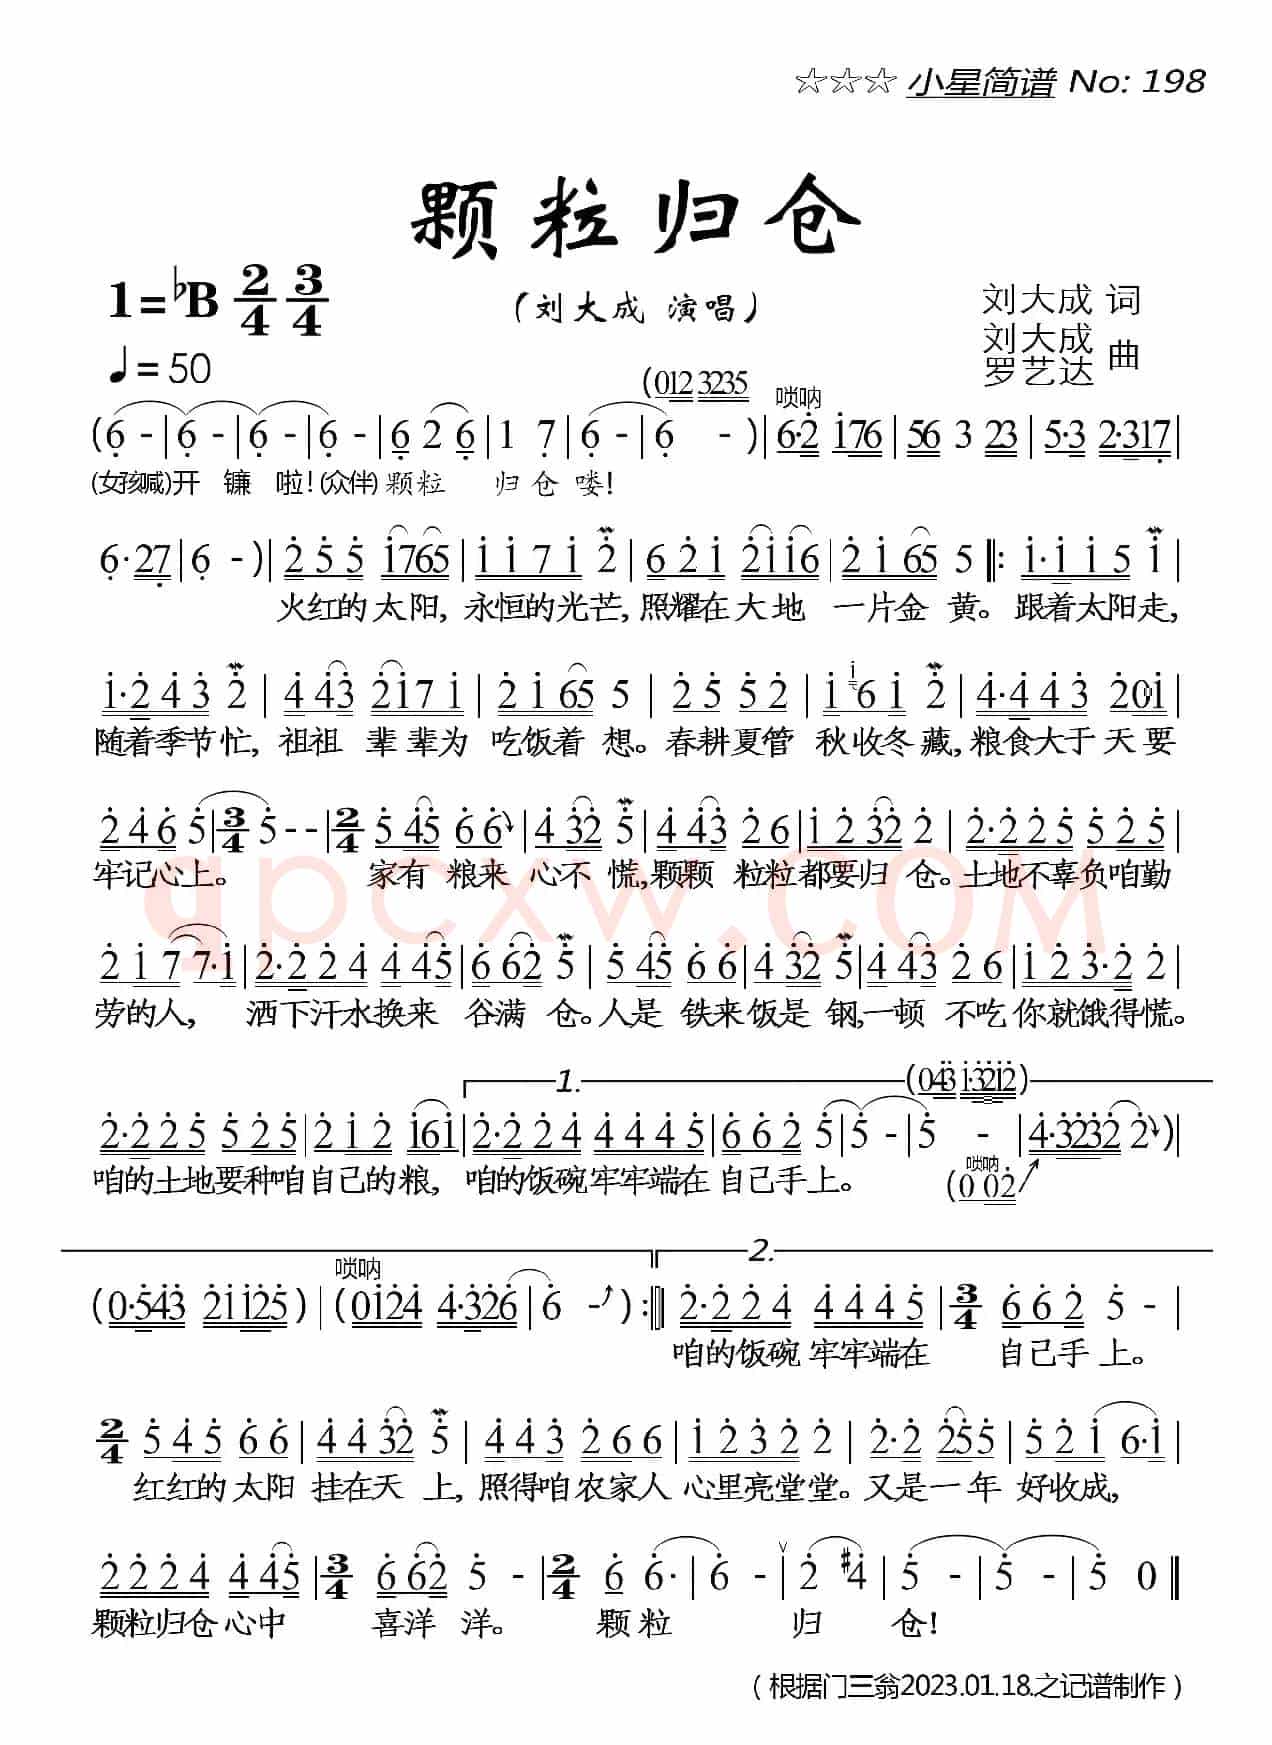 ☆☆☆ 小星简谱 No: 198
颗粒归仓
1=♭B 2/4 3/4
(刘大成 演唱)
刘大成 词
刘大成 曲
罗艺达
♩=50
(012 3235
唢呐
(6 - | 6 - | 6 - | 6 - | 6 2 6 | 1 7 | 6 - | 6 - ) | 6·2 176 | 56 3 23 | 5·3 2·317 |
(女孩喊)开 镰 啦!(众伴)颗粒 归仓喽!
6·27 | 6 - ) | 2 5 5 1765 | 1 1 7 1 2 | 6 2 1 2116 | 2 1 65 5 ‖: 1·1 1 5 1 |
火红的太阳,永恒的光芒,照耀在大地 一片金 黄。跟着太阳走,
1·2 4 3 2 | 4 43 217 1 | 2 1 65 5 | 2 5 5 2 | 1 6 1 2 | 4·4 4 3 201 |
随着季节忙, 祖祖 辈 辈为 吃饭着 想。春耕夏管 秋收冬藏,粮食大于天要
2 4 6 5 | 3/4 5 - - | 2/4 5 45 6 6 | 4 32 5 | 4 43 2 6 | 1 2 32 2 | 2·2 2 5 5 2 5 |
牢记心上。 家有 粮来 心不 慌,颗颗 粒粒都要归 仓。土地不辜负咱勤
2 1 7 7·1 | 2·2 2 4 4 45 | 6 62 5 | 5 45 6 6 | 4 32 5 | 4 43 2 6 | 1 2 3·2 2 |
劳的人, 洒下汗水换来 谷满 仓。人是 铁来饭是 钢,一顿 不吃你就饿得慌。
1. (043 1·3212)
2·2 2 5 5 2 5 | 2 1 2 161 | 2·2 2 4 4 4 4 5 | 6 6 2 5 | 5 - | 5 - | 4·3232 2 ) |
咱的土地要种咱自己的粮, 咱的饭碗牢牢端在 自己手上。
唢呐
(0 02
2.
唢呐
(0·543 211125) | (0124 4·326 | 6 - ) :‖ 2·2 2 4 4 4 4 5 | 3/4 6 6 2 5 - |
咱的饭碗 牢牢端在 自己手 上。
2/4 5 4 5 6 6 | 4 4 32 5 | 4 4 3 2 6 6 | 1 2 3 2 2 | 2·2 255 | 5 2 1 6·1 |
红红的太阳 挂在天 上,照得咱农家人 心里亮堂堂。又是一年 好收成,
2 2 2 4 4 45 | 3/4 6 62 5 - | 2/4 6 6· | 6 - | 2 #4 | 5 - | 5 - | 5 0 ‖
颗粒归仓心中 喜洋 洋。 颗 粒 归 仓!
(根据门三翁2023.01.18.之记谱制作)
qpcxw.COM